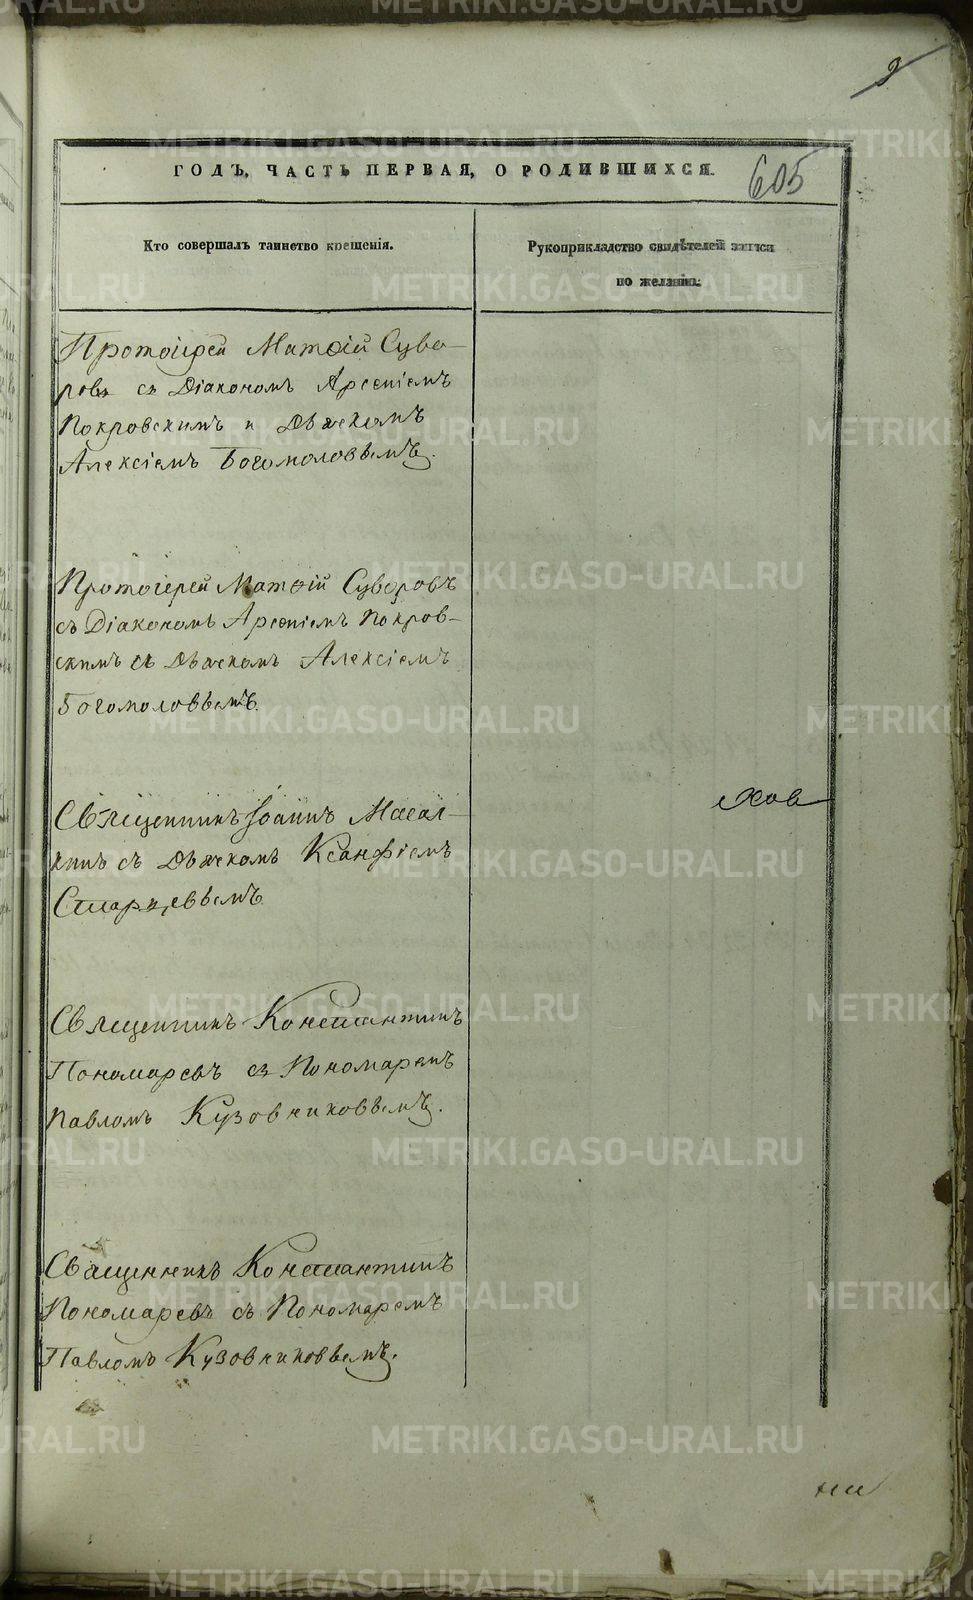 ГОДЪ, ЧАСТЬ ПЕРВАЯ, О РОДИВШИХСЯ.
605
Кто совершалъ таинство крещенія.
Рукоприкладство свидѣтелей записи
по желанію.
Протоіерей Матѳій Суво-
ровъ съ Діакономъ Арсеніемъ
Покровскимъ и Дьячкомъ
Алексіемъ Богомоловымъ.
Протоіерей Матѳій Суворовъ
съ Діакономъ Арсеніемъ Покров-
скимъ съ Дьячкомъ Алексіемъ
Богомоловымъ
Священникъ Іоаннъ Масал-
кинъ съ Дьячкомъ Ксанфіемъ
Старцевымъ
Священникъ Константинъ
Пономаревъ съ Пономаремъ
Павломъ Кузовниковымъ.
Священникъ Константинъ
Пономаревъ съ Пономаремъ
Павломъ Кузовниковымъ.
METRIKI.GASO-URAL.RU